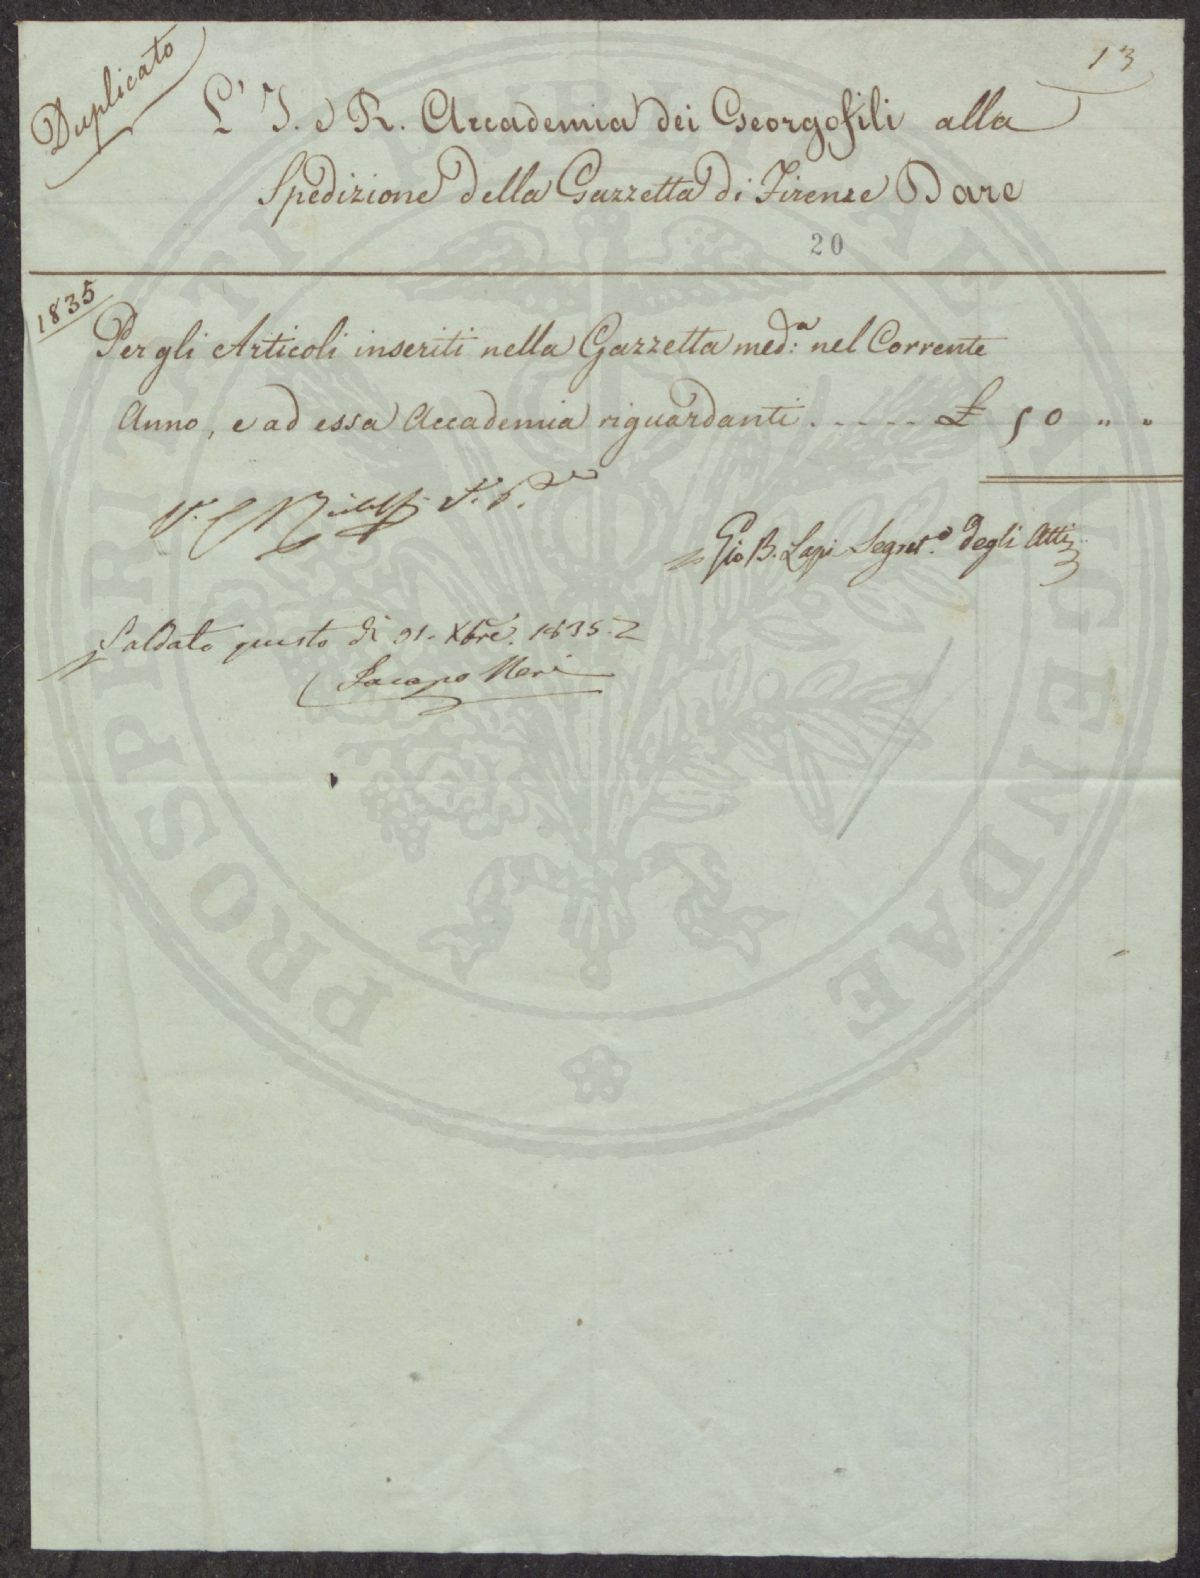 Duplicato
13
L' I. e R. Accademia dei Georgofili alla
Spedizione della Gazzetta di Firenze Dare
20
1835
Per gli Articoli inseriti nella Gazzetta med:ª nel Corrente
Anno, e ad essa Accademia riguardanti . - - - - - £ 50 " "
V. C Ridolfi
Gio B. Lapi Segret.º degli Atti
Saldato questo dì 31. Xbre. 1835.
Jacopo Neri
PROSPERITATI PUBLICAE AUGENDAE